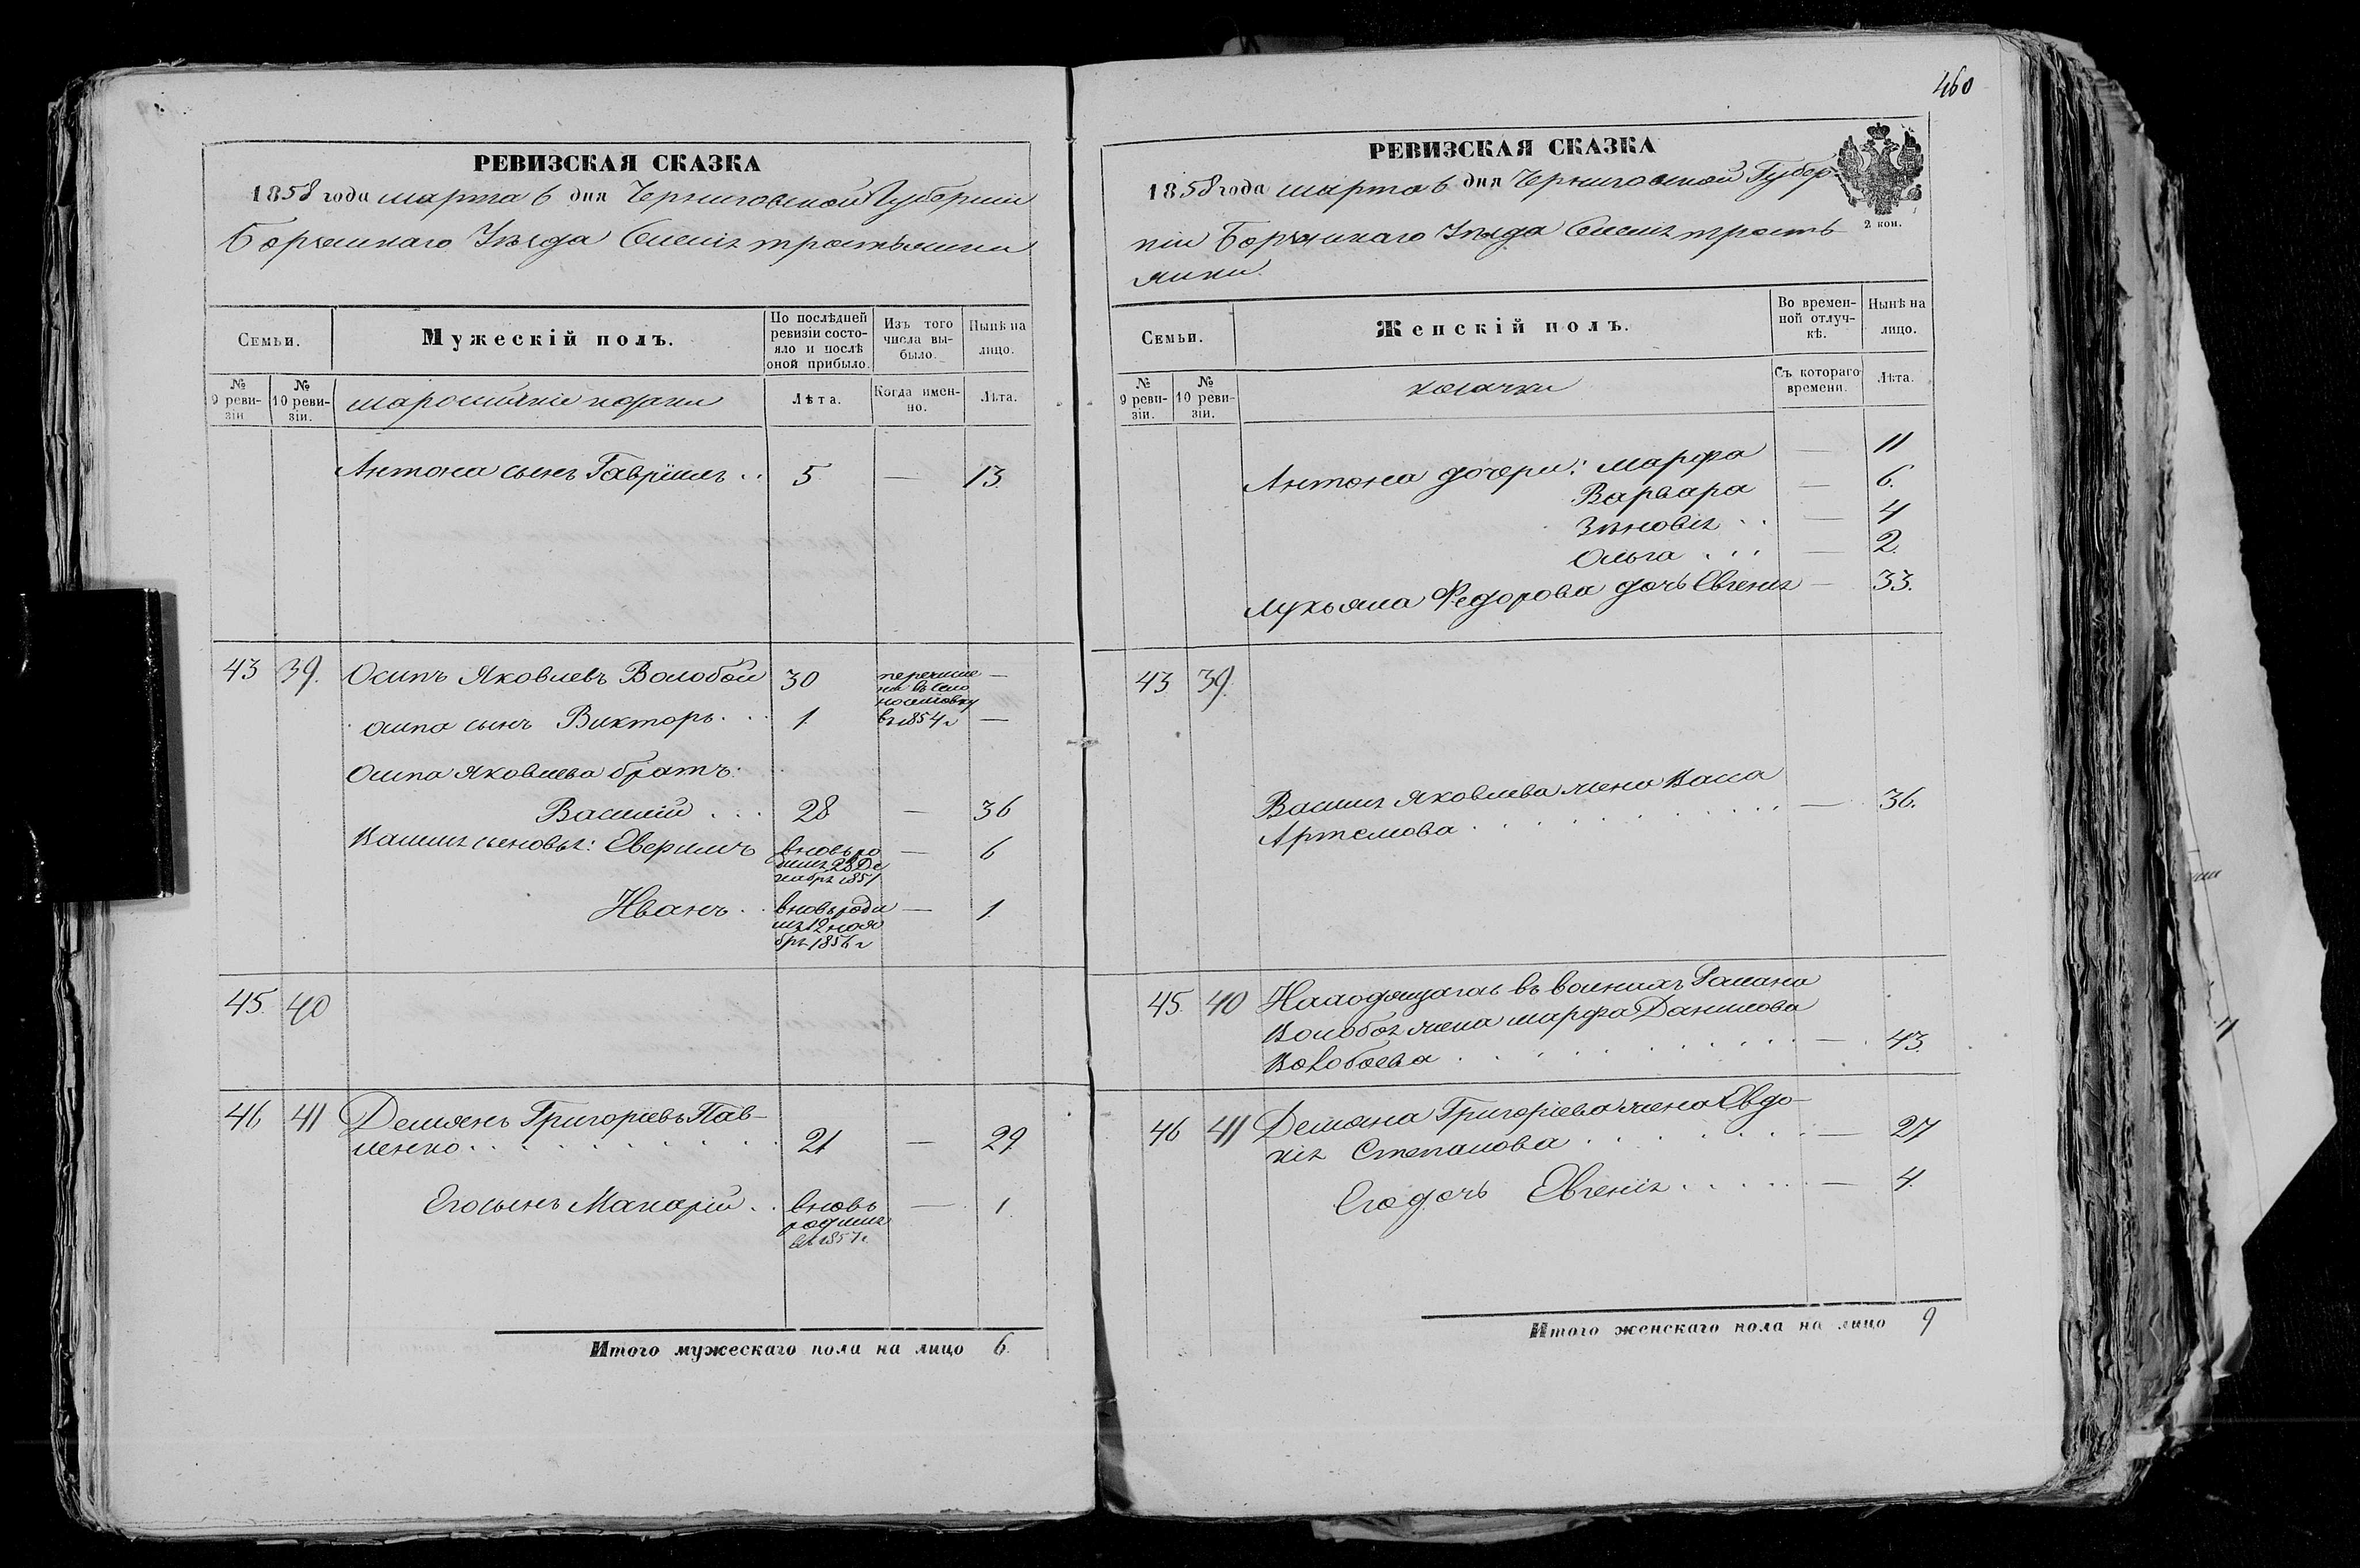 РЕВИЗСКАЯ СКАЗКА
1858 года марта 6 дня Черниговской Губернiи
Борзенскаго Уѣзда Села Тростянки
Семьи.
Мужескiй полъ.
По послѣдней ревизiи состояло и послѣ оной прибыло.
Изъ того числа выбыло.
Нынѣ на лицо.
№ 9 ревизiи
№ 10 ревизiи.
малороссiйскiе козаки
Лѣта.
Когда именно.
Лѣта.
Антона сынъ Гаврiилъ .. 5 — 13.
43 39. Осипъ Яковлевъ Волобой 30 перечисле —
на въ село
в 1854 г
осипа сынъ Викторъ . . . 1. —
Осипа Яковлева братъ:
Василiй . . . 28 — 36
Василiя сыновья: Аверьянъ
вновь ро — 6
дился 28 Де
кабря 1851
Иванъ . . вновь роди — 1.
лся 12 нояб
бря 1856 г
45. 40
46 41 Демьянъ Григорiевъ Пав-
ленко . . . . . . . . . 21 — 29.
Его сынъ Макарiй . . вновь — 1.
родился
въ 1857 г.
Итого мужескаго пола на лицо 6.
460
РЕВИЗСКАЯ СКАЗКА
1858 года марта 6 дня Черниговской Губер-
нiи Борзенскаго Уѣзда Села Трость
янки.
2 коп.
Семьи.
Женскiй полъ.
Во временной отлучкѣ.
Нынѣ на лицо.
№ 9 ревизiи.
№ 10 ревизiи.
козачки
Съ котораго времени.
Лѣта.
Антона дочери: Марфа — 11
Варвара — 6.
Зѣновiя . . — 4
Ольга . . . — 2.
Лукьяна Федорова дочь Евгенiя — 33.
43 39.
Василiя Яковлева жена Васса
Артемова . . . . . . . . . — 36.
45. 40 Находящагось въ военныхъ Романа
Волобоя жена Марфа Данилова
Волобоева . . . . . . . . . — 43.
46 41 Демьяна Григорiева жена Евдо-
кiя Степанова . . . . . . . — 27
Его дочь Евгенiя . . . . . — 4.
Итого женскаго пола на лицо 9